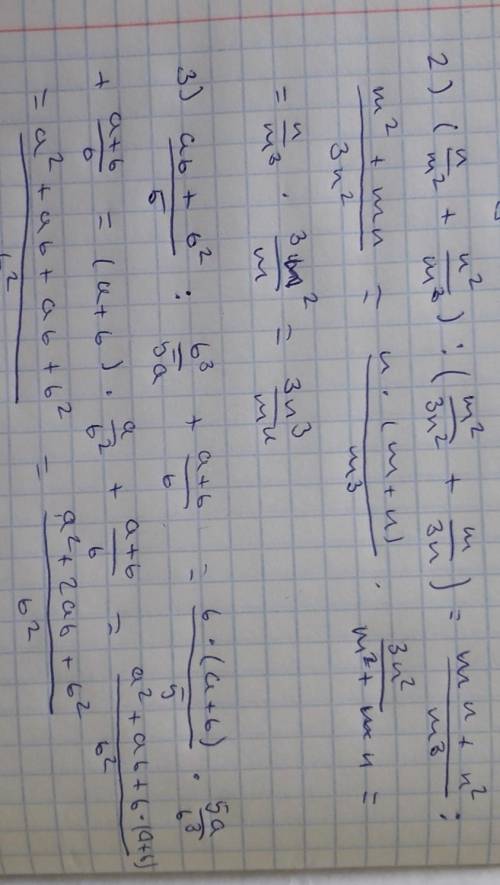 2) (n/m² + n²/m³) : (m²/3n² + m/3n) = (mn + n²)/m³ :
(m² + mn)/3n² = n · (m+n)/m³ · 3n²/(m² + mn) =
= n/m³ · 3n²/m = 3n³/m⁴
3) (ab + b²)/5 : b³/5a + (a+b)/b = b · (a+b)/5 · 5a/b³
+ (a+b)/b = (a+b) · a/b² + (a+b)/b = (a² + ab + b·(a+b))/b²
= (a² + ab + ab + b²)/b² = (a² + 2ab + b²)/b²